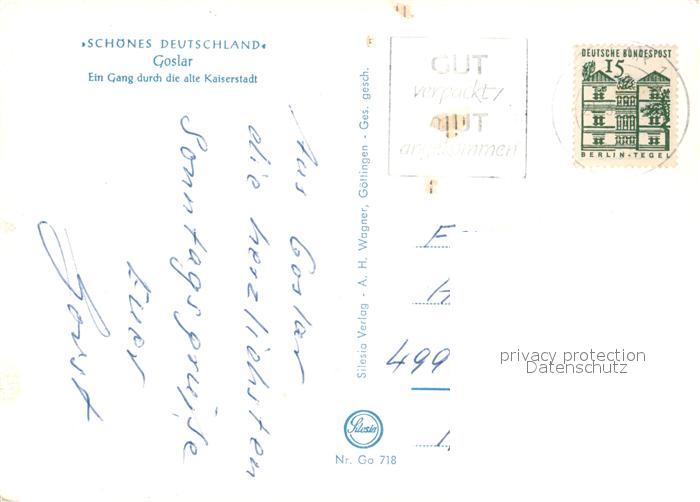 ›SCHÖNES DEUTSCHLAND‹
Goslar
Ein Gang durch die alte Kaiserstadt
Aus Goslar
die herzlichsten
Sonntagsgrüße
Euer
Horst
Silesia Verlag - A. H. Wagner, Göttingen - Ges. gesch.
Silesia
Nr. Go 718
GUT
verpackt,
GUT
angekommen
DEUTSCHE BUNDESPOST
15
BERLIN-TEGEL
F
499
privacy protection
Datenschutz